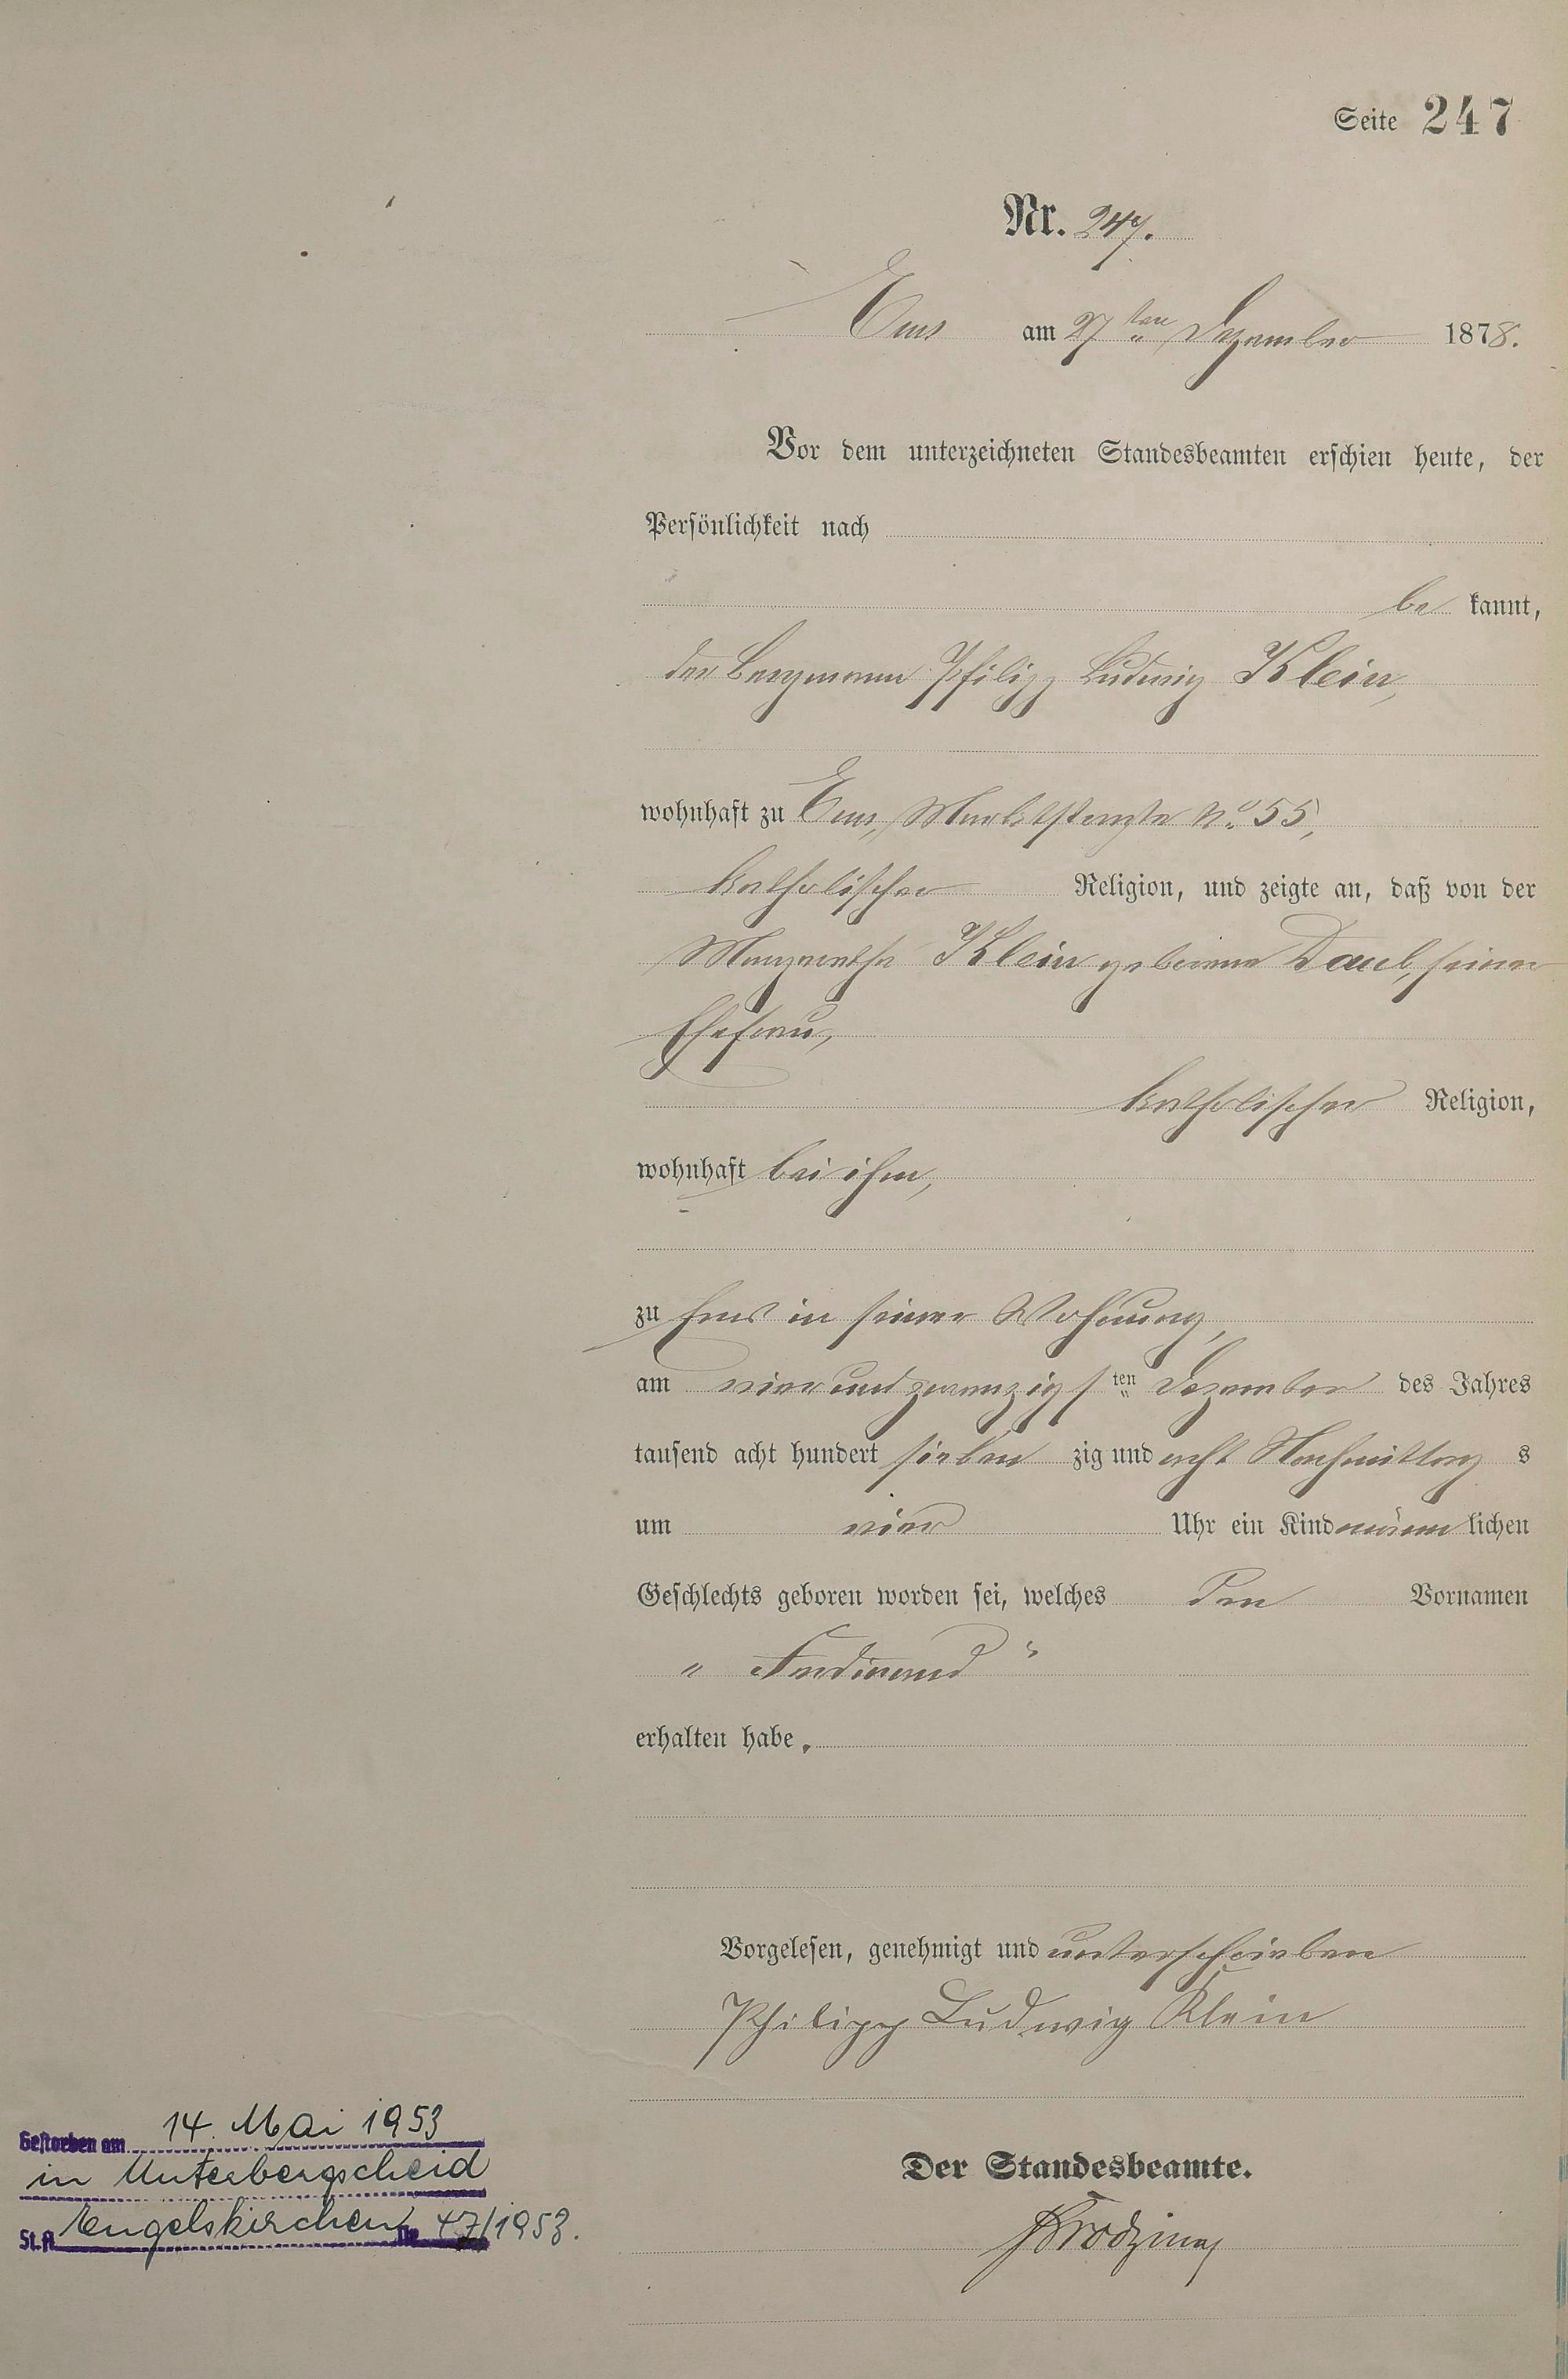 Seite 247
Nr. 247.
Ems am 27ten Dezember 1878.
Vor dem unterzeichneten Standesbeamten erschien heute, der
Persönlichkeit nach
be kannt,
der Bergmann Philipp Ludwig Klein,
wohnhaft zu Ems, Marktstraße No. 55,
katholischer Religion, und zeigte an, daß von der
Margaretha Klein geborene Daul, seiner
Ehefrau,
katholischer Religion,
wohnhaft bei ihm,
zu Ems in seiner Wohnung,
am vier und zwanzigsten Dezember des Jahres
tausend acht hundert sieben zig und acht Nachmittag s
um vier Uhr ein Kind männ lichen
Geschlechts geboren worden sei, welches den Vornamen
"Ferdinand"
erhalten habe.
Vorgelesen, genehmigt und unterschrieben
Philipp Ludwig Klein
Der Standesbeamte.
Gestorben am 14. Mai 1953
in Unterbergscheid
St.A. Engelskirchen Nr. 47/1953.